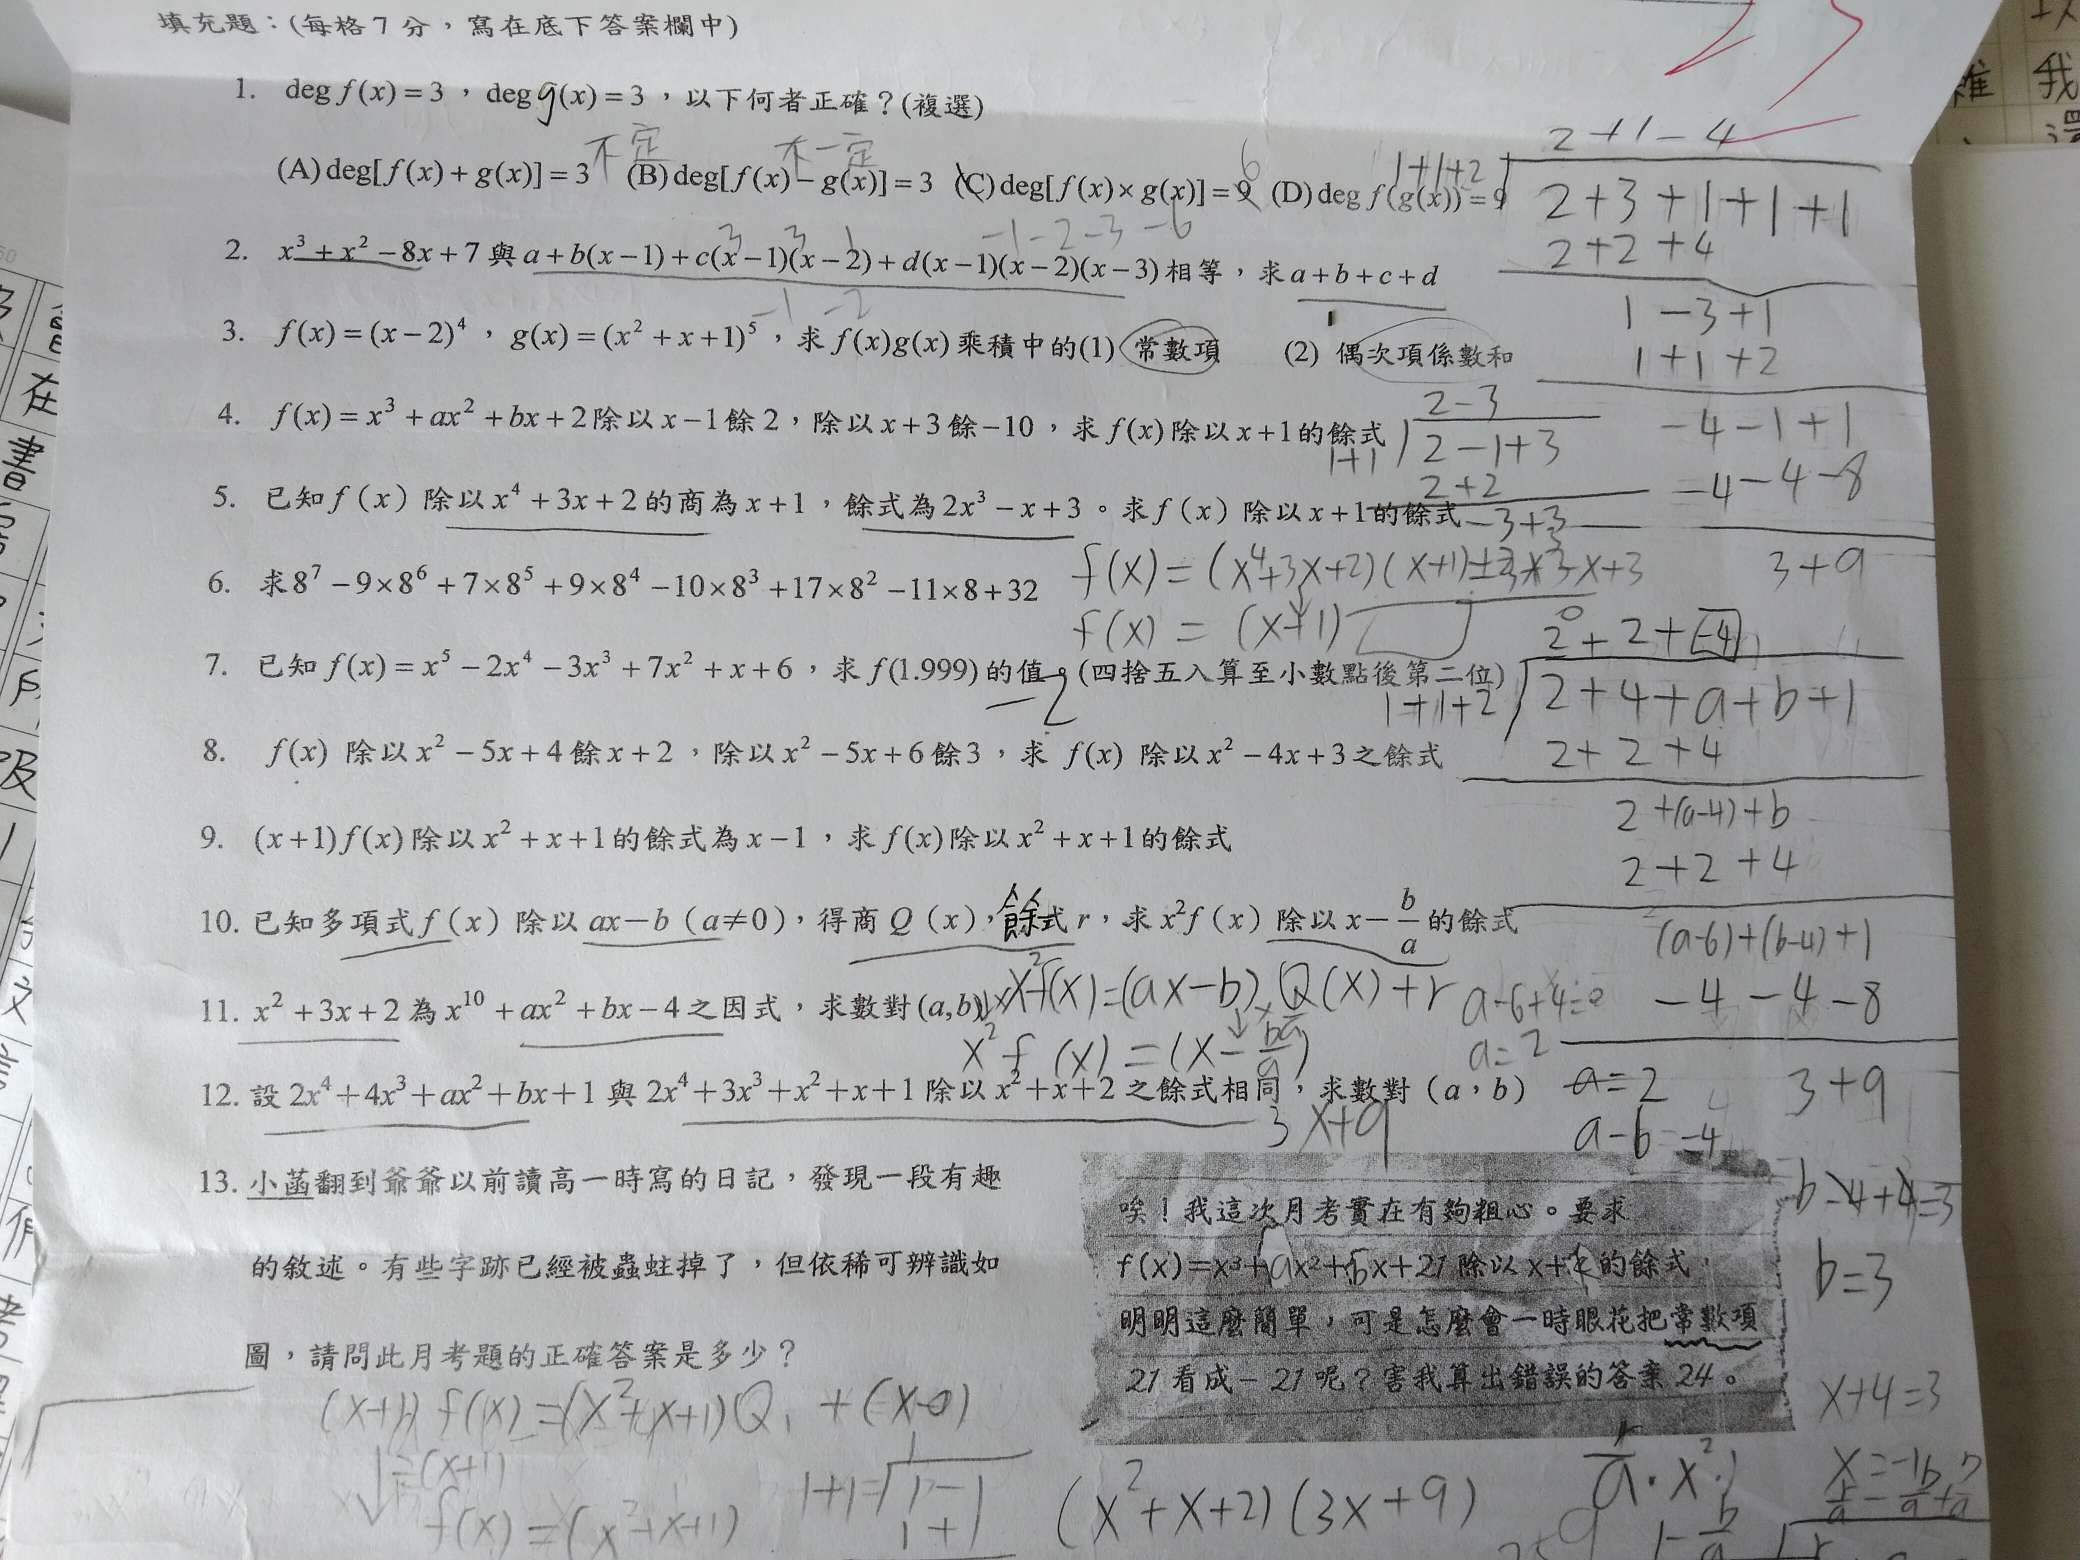 填充題：(每格7分，寫在底下答案欄中)
1. deg f(x) = 3，deg g(x) = 3，以下何者正確？(複選)
(A) deg[f(x) + g(x)] = 3 (B) deg[f(x) − g(x)] = 3 (C) deg[f(x) × g(x)] = 9 (D) deg f(g(x)) = 9
不一定
6
2. x³ + x² − 8x + 7 與 a + b(x−1) + c(x−1)(x−2) + d(x−1)(x−2)(x−3) 相等，求 a + b + c + d
3. f(x) = (x−2)⁴，g(x) = (x² + x + 1)⁵，求 f(x)g(x) 乘積中的(1) 常數項 (2) 偶次項係數和
4. f(x) = x³ + ax² + bx + 2 除以 x−1 餘 2，除以 x+3 餘 −10，求 f(x) 除以 x+1 的餘式
5. 已知 f(x) 除以 x⁴ + 3x + 2 的商為 x + 1，餘式為 2x³ − x + 3。求 f(x) 除以 x+1 的餘式
6. 求 8⁷ − 9×8⁶ + 7×8⁵ + 9×8⁴ − 10×8³ + 17×8² − 11×8 + 32
7. 已知 f(x) = x⁵ − 2x⁴ − 3x³ + 7x² + x + 6，求 f(1.999) 的值。(四捨五入算至小數點後第二位)
8. f(x) 除以 x² − 5x + 4 餘 x + 2，除以 x² − 5x + 6 餘 3，求 f(x) 除以 x² − 4x + 3 之餘式
9. (x+1)f(x) 除以 x² + x + 1 的餘式為 x − 1，求 f(x) 除以 x² + x + 1 的餘式
10. 已知多項式 f(x) 除以 ax−b (a≠0)，得商 Q(x)，餘式 r，求 x²f(x) 除以 x−b/a 的餘式
11. x² + 3x + 2 為 x¹⁰ + ax² + bx − 4 之因式，求數對(a,b)
12. 設 2x⁴+4x³+ax²+bx+1 與 2x⁴+3x³+x²+x+1 除以 x²+x+2 之餘式相同，求數對 (a，b)
13. 小菡翻到爺爺以前讀高一時寫的日記，發現一段有趣
的敘述。有些字跡已經被蟲蛀掉了，但依稀可辨識如
圖，請問此月考題的正確答案是多少？
唉！我這次月考實在有夠粗心。要求
f(x)=x³+ax²+bx+21 除以 x+ 的餘式，
明明這麼簡單，可是怎麼會一時眼花把常數項
21 看成 −21 呢？害我算出錯誤的答案 24。
2+1−4
1+1+2
2+3+1+1+1
2+2+4
1−3+1
1+1+2
−4−1+1
−4−4−8
3+9
2−3
1+1
2−1+3
2+2
−3+3
f(x) = (x+1)
−2
2+2+−4
1+1+2
2+4+a+b+1
2+2+4
2+(a-4)+b
2+2+4
(a-6)+(b-4)+1
−4−4−8
3+9
a−6+4=
a=2
a=2
a−b=−4
b=3
3x+9
x+4=3
(x²+x+2)(3x+9)